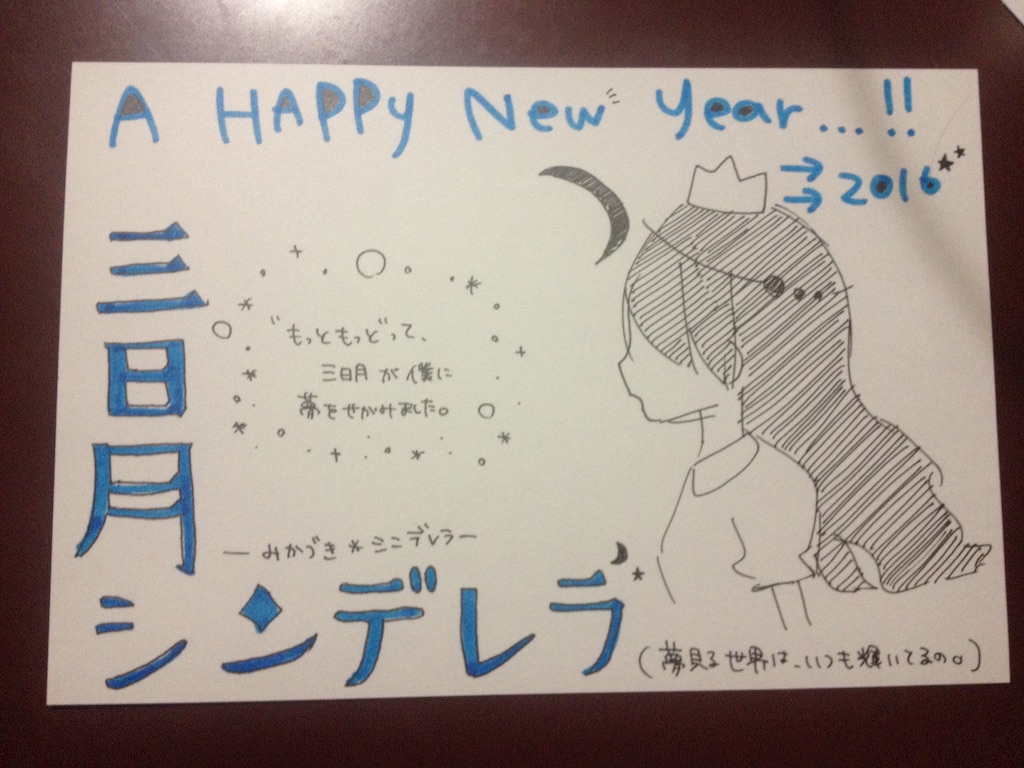 A HAPPy New year...!!
→→2016
三日月
シンデレラ
"もっともっど"って、
三日月が僕に
夢をせがみました。
—みかづき*シンデレラ—
(夢見る世界は、いつも輝いてるの。)